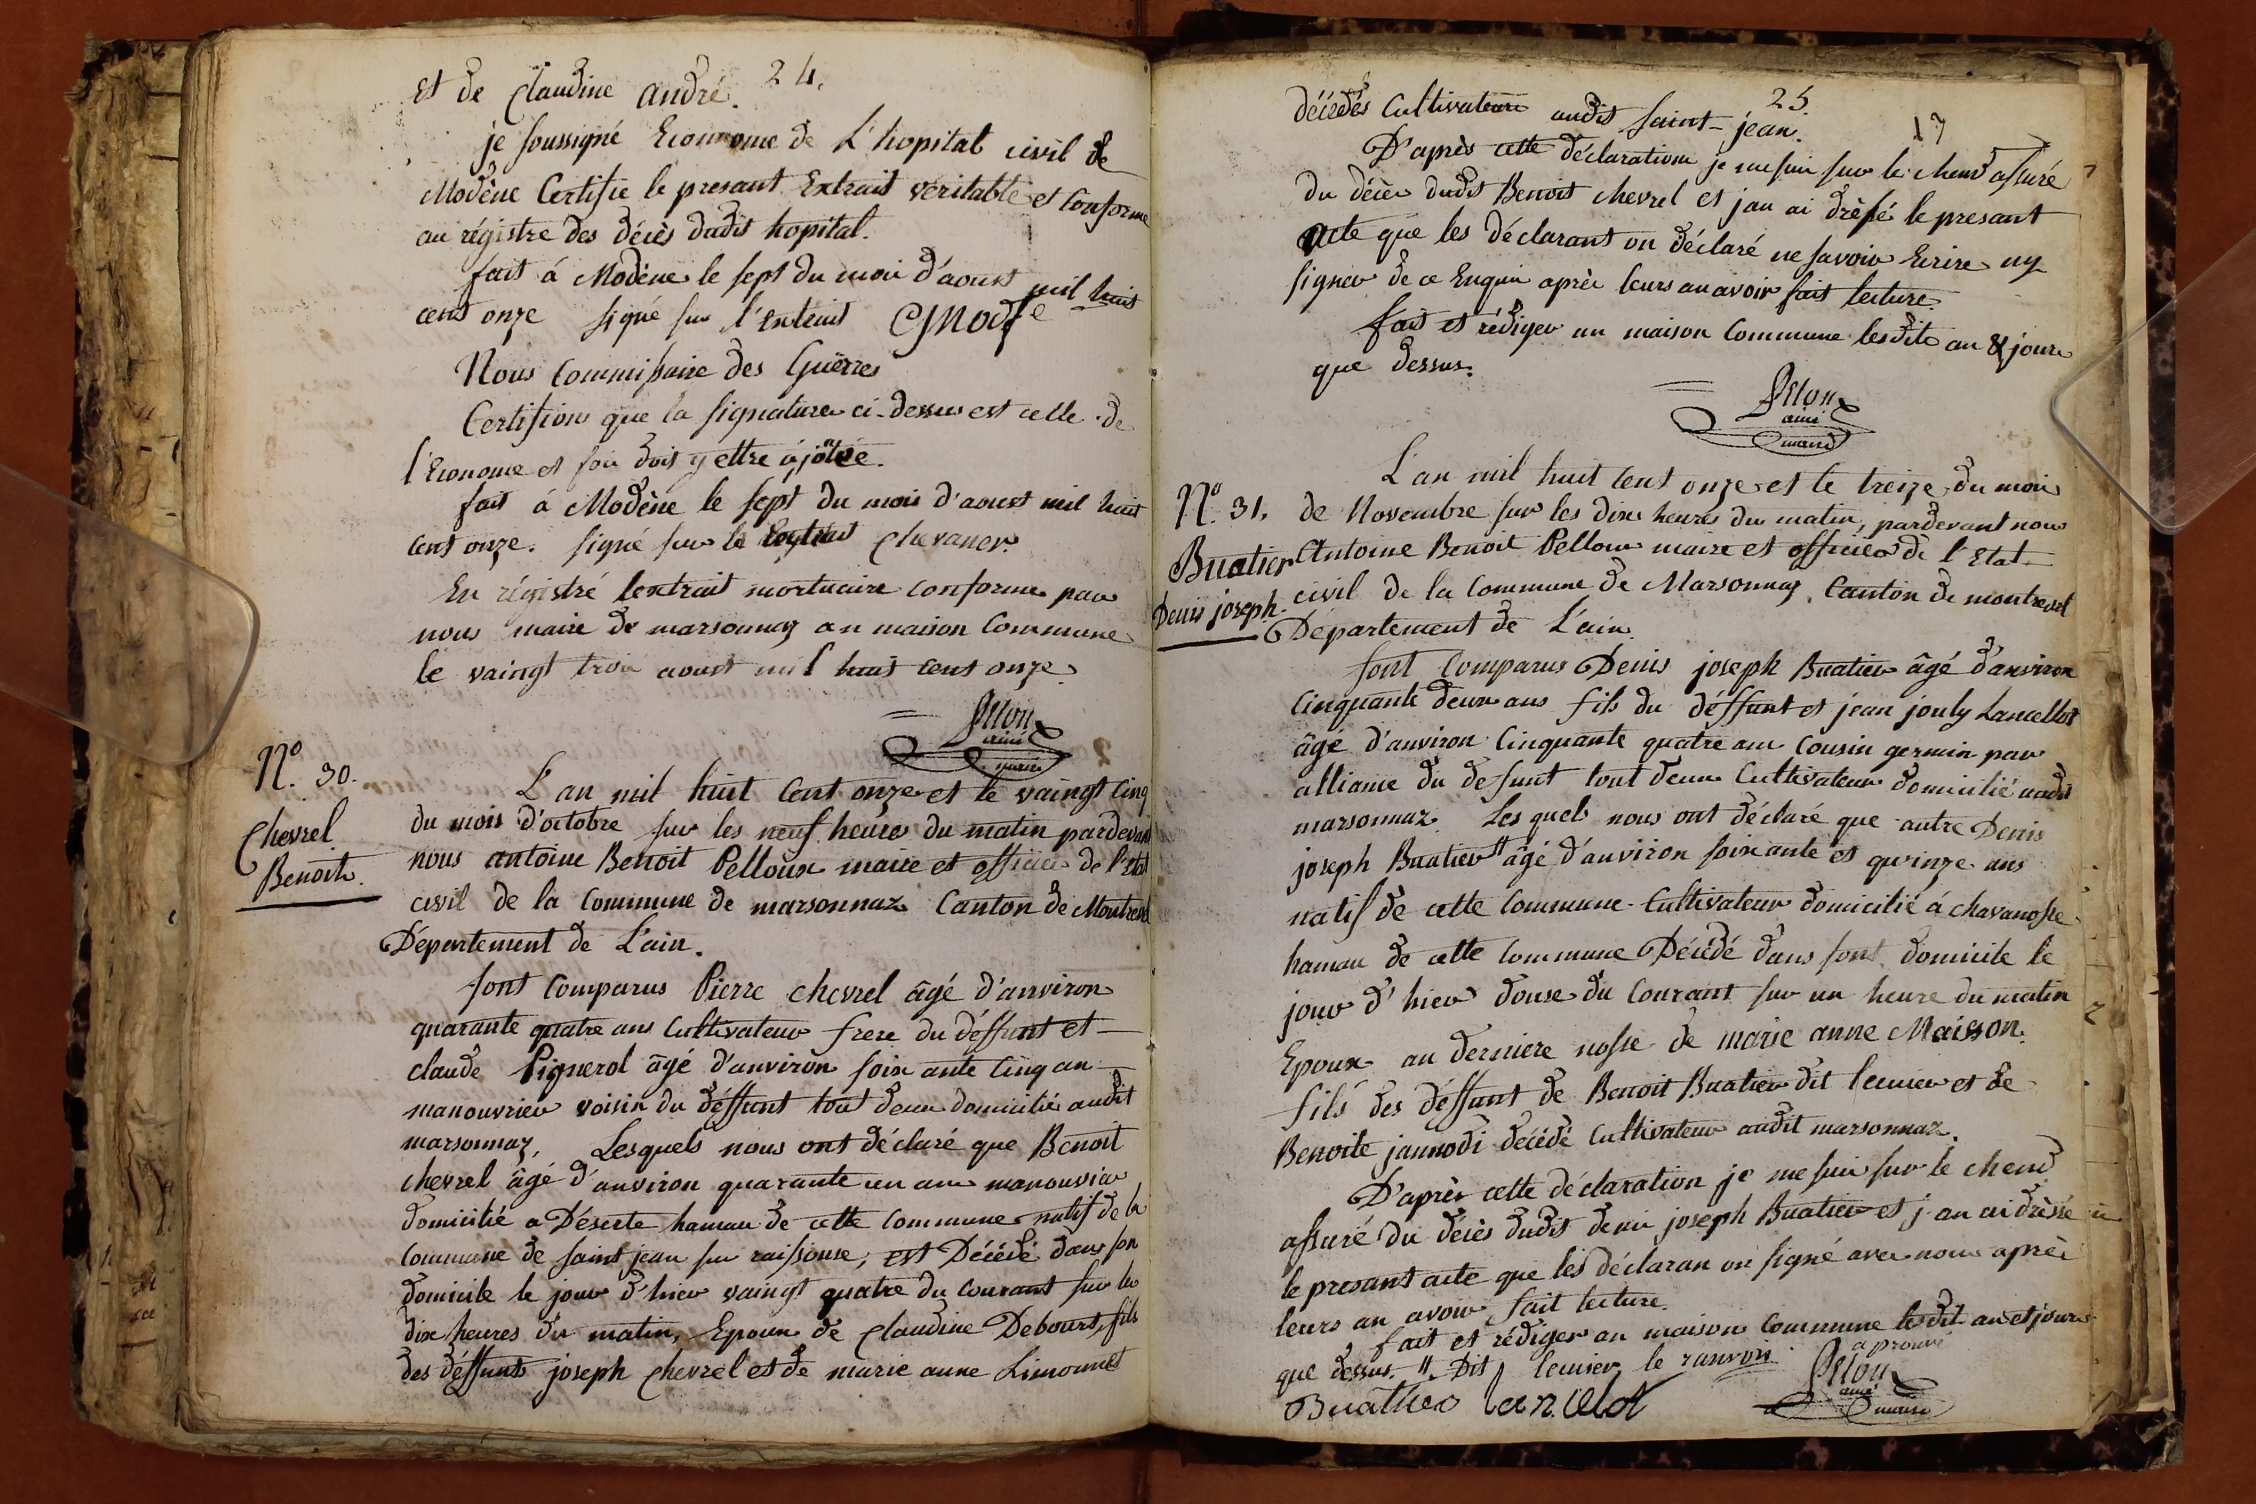 24.
et de Claudine André.
je soussigné Econome de L'hopital civil de
Modène Certifie le presant Extrait veritable et Conforme
au régistre des décès dudit hopital.
fait á Modène le sept du moi d'aoust mil huit
cent onze signé sur l'Extrait
Nous Commissaire des Guërres
Certifions que la signature ci-dessus est celle de
l'Econome et foi doit y ettre ájoutée.
fait á Modène le sept du mois d'aoust mil huit
cent onze. signé sur le Chevaner.
En régistré lextrait mortuaire conforme par
nous maire de marsonnaz an maison Commune
le vaingt troi aoust mil huit cent onze
Pellou
ainé
maire
N.º 30.
Chevrel
Benoit.
L'an mil huit Cent onze et le vaingt Cinq
du mois d'octobre sur les neuf heures du matin pardevant
nous antoine Benoit Pelloux maire et officier de l'Etat
civil de la Commune de marsonnaz Canton de Montrevel
Département de L'ain.
sont Comparus Pierre Chevrel âgé d'anviron
quarante quatre ans Cultivateur frere du déffunt et
claude Pignerol âgé d'anviron soix ante Cinq an
manouvrier voisin du déffunt tout deux domicilié audit
marsonnaz, Lesquels nous ont déclaré que Benoit
chevrel âgé d'anviron quarante un ans manouvrier
domicilié a Déserte hamau de cette Commune natif de la
Commune de saint jean sur raissouse, est Décédé dans son
domicile le jour d'hier vaingt quatre du Courant sur les
dix heures du matin, Epoux de Claudine Debourt, fils
des déffunts joseph Chevrel et de marie anne Limonnet
25.
17
décédés Cultivateurs audit saint-jean.
D'après cette déclaration je me sui sur le chand assuré
du décès dudit Benoit chevrel et jan ai drèssé le presant
Acte que les déclarant on déclaré ne savoir Ecrire ny
signer de ce Enquis après leurs an avoir fait lecture.
fait et rédiger an maison Commune lesdits an & jour
que dessus.
Pellou
ainé
maire
N.º 31.
Buatier
Denis joseph.
L'an mil huit cent onze et le treize du mois
de Novembre sur les dix heures du matin, pardevant nous
Antoine Benoit Pelloux maire et officier de l'Etat
civil de la Commune de Marsonnaz, Canton de montrevel
Département de L'ain.
sont Comparus Denis joseph Buatier âgé d'anviron
Cinquante deux ans fils du déffunt et jean jouly Lancellot
âgé d'anviron Cinquante quatre ans Cousin germin par
alliance du defunt tout deux Cultivateur domicilié audit
marsonnaz. Lesquels nous ont déclaré que autre Denis
joseph Buatier " âgé d'anviron soixante et quinze ans
natif de cette Commune Cultivateur domicilié á chavanosse
hamau de cette Commune Décédé dans sont domicile le
jour d'hier douse du Courant sur un heure du matin
Epoux an derniere nosse de marie anne Maisson.
fils des déffunt de Benoit Buatier dit lecuier et de
Benoite jannodi décédé Cultivateur audit marsonnaz.
D'après cette déclaration je me sui sur le chand
assuré du décès dudit deni joseph Buatier et j'an ai drèssé
le presant acte que les déclaran on signé avec nous après
leurs an avoir fait lecture.
fait et rédiger an maison Commune lesdit an et jour
que dessus. " Dit lecuier le ranvoi aprouvé
Buathier Lancelot
Pellou
ainé
maire